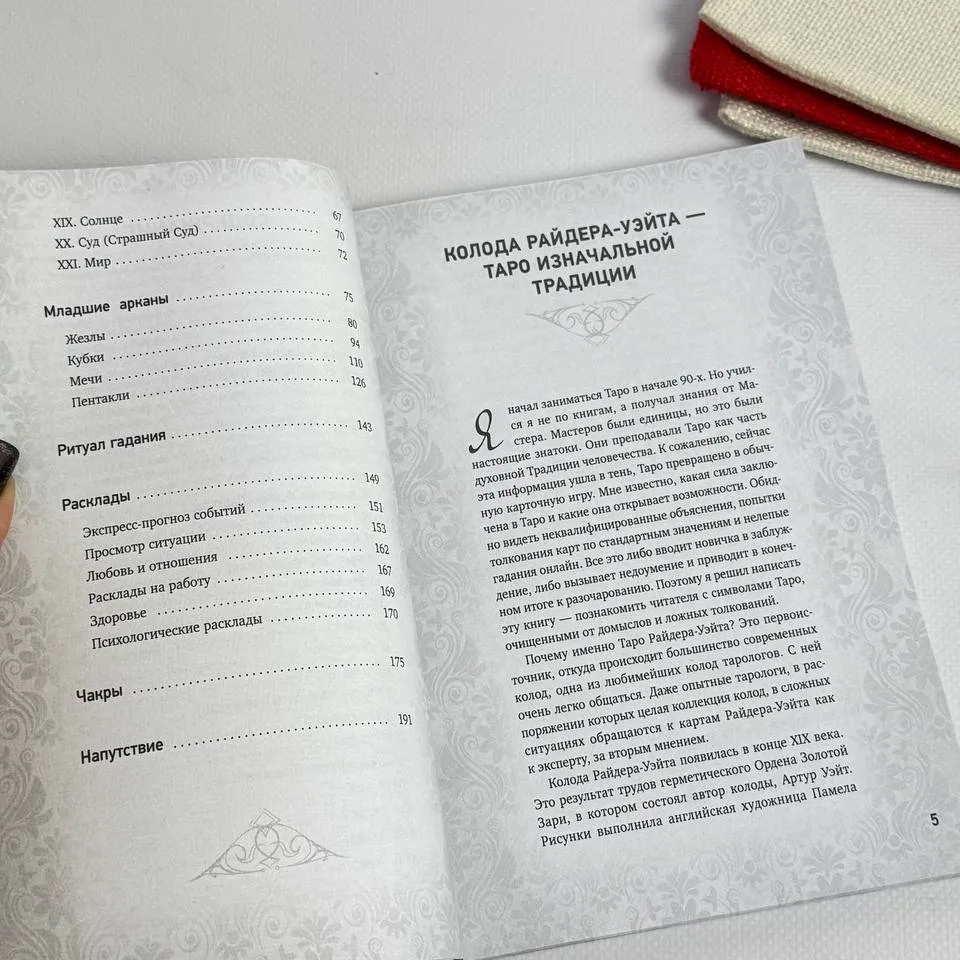 XIX. Солнце ........................ 67
XX. Суд (Страшный Суд) ........................ 70
XXI. Мир ........................ 72
Младшие арканы ........................ 75
Жезлы ........................ 80
Кубки ........................ 94
Мечи ........................ 110
Пентакли ........................ 126
Ритуал гадания ........................ 143
Расклады ........................ 149
Экспресс-прогноз событий ........................ 151
Просмотр ситуации ........................ 153
Любовь и отношения ........................ 162
Расклады на работу ........................ 167
Здоровье ........................ 169
Психологические расклады ........................ 170
Чакры ........................ 175
Напутствие ........................ 191
КОЛОДА РАЙДЕРА-УЭЙТА —
ТАРО ИЗНАЧАЛЬНОЙ
ТРАДИЦИИ
Я начал заниматься Таро в начале 90-х. Но учил-
ся я не по книгам, а получал знания от Ма-
стера. Мастеров были единицы, но это были
настоящие знатоки. Они преподавали Таро как часть
духовной Традиции человечества. К сожалению, сейчас
эта информация ушла в тень, Таро превращено в обыч-
ную карточную игру. Мне известно, какая сила заклю-
чена в Таро и какие она открывает возможности. Обид-
но видеть неквалифицированные объяснения, попытки
толкования карт по стандартным значениям и нелепые
гадания онлайн. Все это либо вводит новичка в заблуж-
дение, либо вызывает недоумение и приводит в конеч-
ном итоге к разочарованию. Поэтому я решил написать
эту книгу — познакомить читателя с символами Таро,
очищенными от домыслов и ложных толкований.
Почему именно Таро Райдера-Уэйта? Это первоис-
точник, откуда происходит большинство современных
колод, одна из любимейших колод тарологов. С ней
очень легко общаться. Даже опытные тарологи, в рас-
поряжении которых целая коллекция колод, в сложных
ситуациях обращаются к картам Райдера-Уэйта как
к эксперту, за вторым мнением.
Колода Райдера-Уэйта появилась в конце XIX века.
Это результат трудов герметического Ордена Золотой
Зари, в котором состоял автор колоды, Артур Уэйт.
Рисунки выполнила английская художница Памела
5